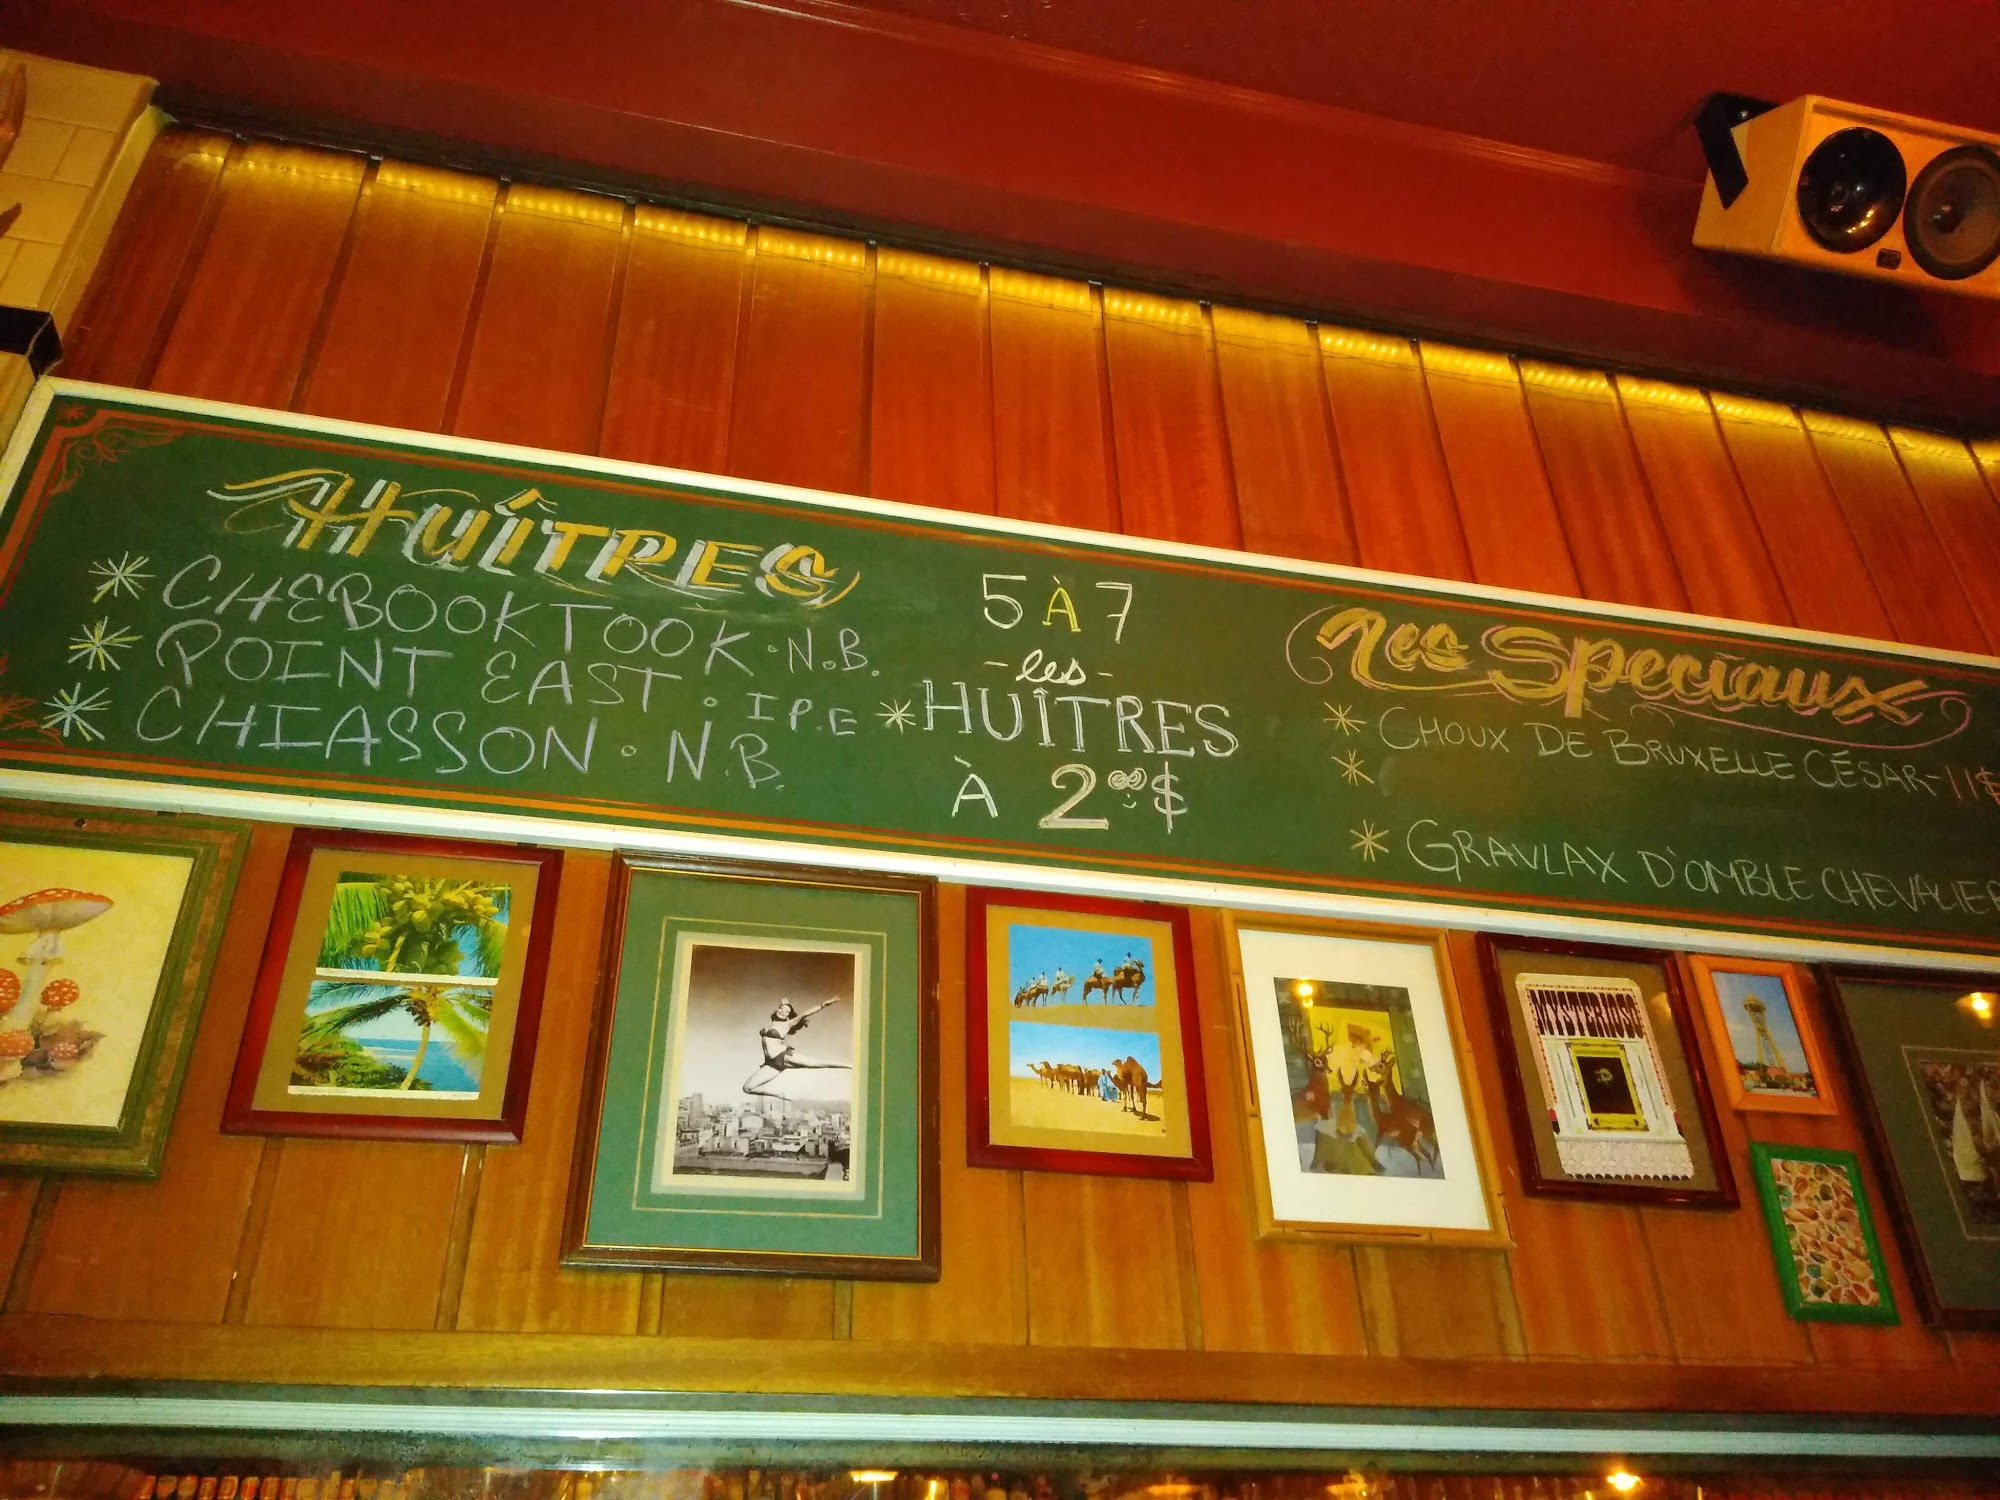 HUÎTRES
* CHEBOOKTOOK . N.B.
* POINT EAST . IP.E
* CHIASSON . N.B.
5 À 7
- les -
* HUÎTRES
À 2⁰⁰$
Les Speciaux
* CHOUX DE BRUXELLE CÉSAR - 11$
*
* GRAVLAX D'OMBLE CHEVALIER
MYSTERIOSO